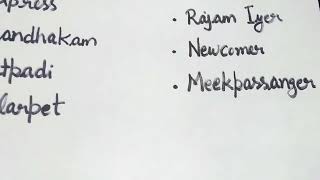 press
andhakam
tpadi
larpet
• Rajam Iyer
• Newcomer
• Meekpassanger